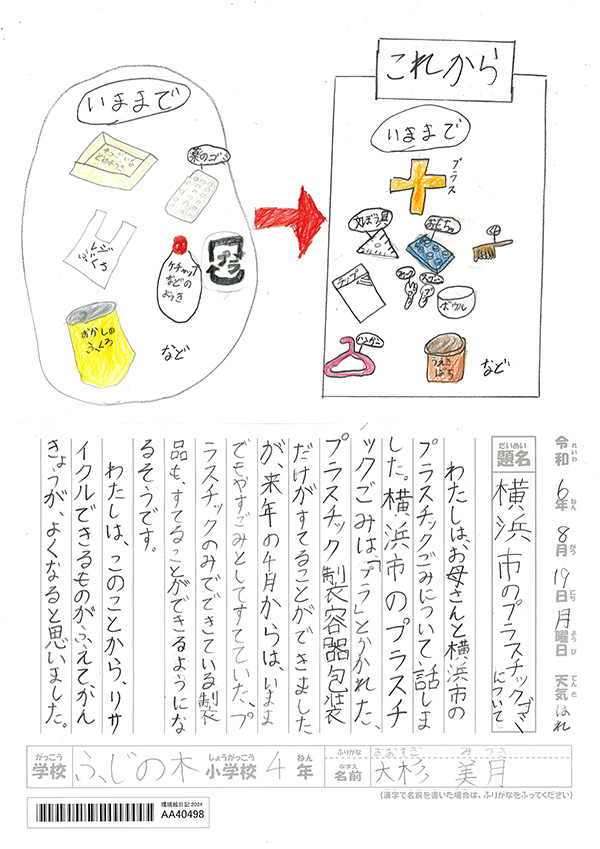 いままで
薬のゴミ
レジ
ぶくろ
ケチャップ
などの
ようき
プラ
おかしの
ふくろ
など
これから
いままで
プラス
文ぼう具
おもちゃ
くし
チップ
フォーク
スプーン
ボウル
ハンガー
うえき
ばち
など
令和6年8月19日月曜日 天気はれ
れいわ ねん がつ にち ようび てんき
だいめい
題名
横浜市のプラスチックゴミ
について
わたしは、お母さんと横浜市の
プラスチックごみについて話しま
した。横浜市のプラスチ
ックごみは、「プラ」とかかれた、
プラスチック製容器包装
だけがすてることができました
が、来年の4月からは、いまま
でもやすごみとしてすてていた、プ
ラスチックのみでできている製
品も、すてることができるようにな
るそうです。
わたしは、このことから、リサ
イクルできるものがふえて、かん
きょうが、よくなると思いました。
がっこう しょうがっこう ねん
学校 ふじの木 小学校 4年
ふりがな おおすぎ みづき
なまえ
名前 大杉 美月
(漢字で名前を書いた場合は、ふりがなをふってください)
環境絵日記2024
AA40498